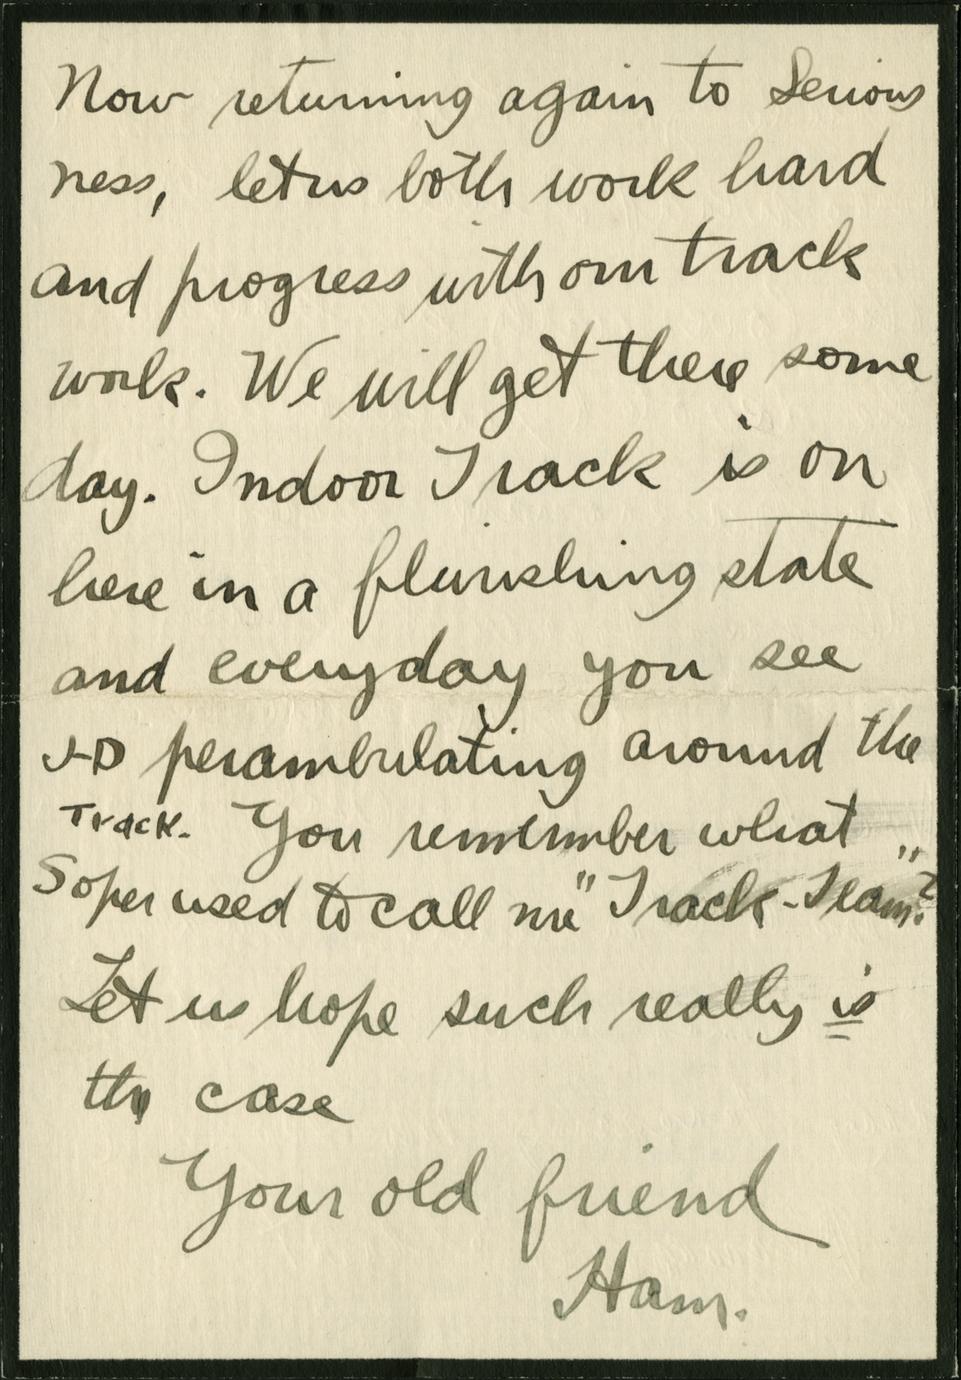 Now returning again to Serious
ness, let us both work hard
and progress with our track
work. We will get there some
day. Indoor Track is on
here in a flurishing state
and everyday you see
perambulating around the
Track. You remember what
Soper used to call me "Track-Team"?
Let us hope such really is
the case
Your old friend
Ham.